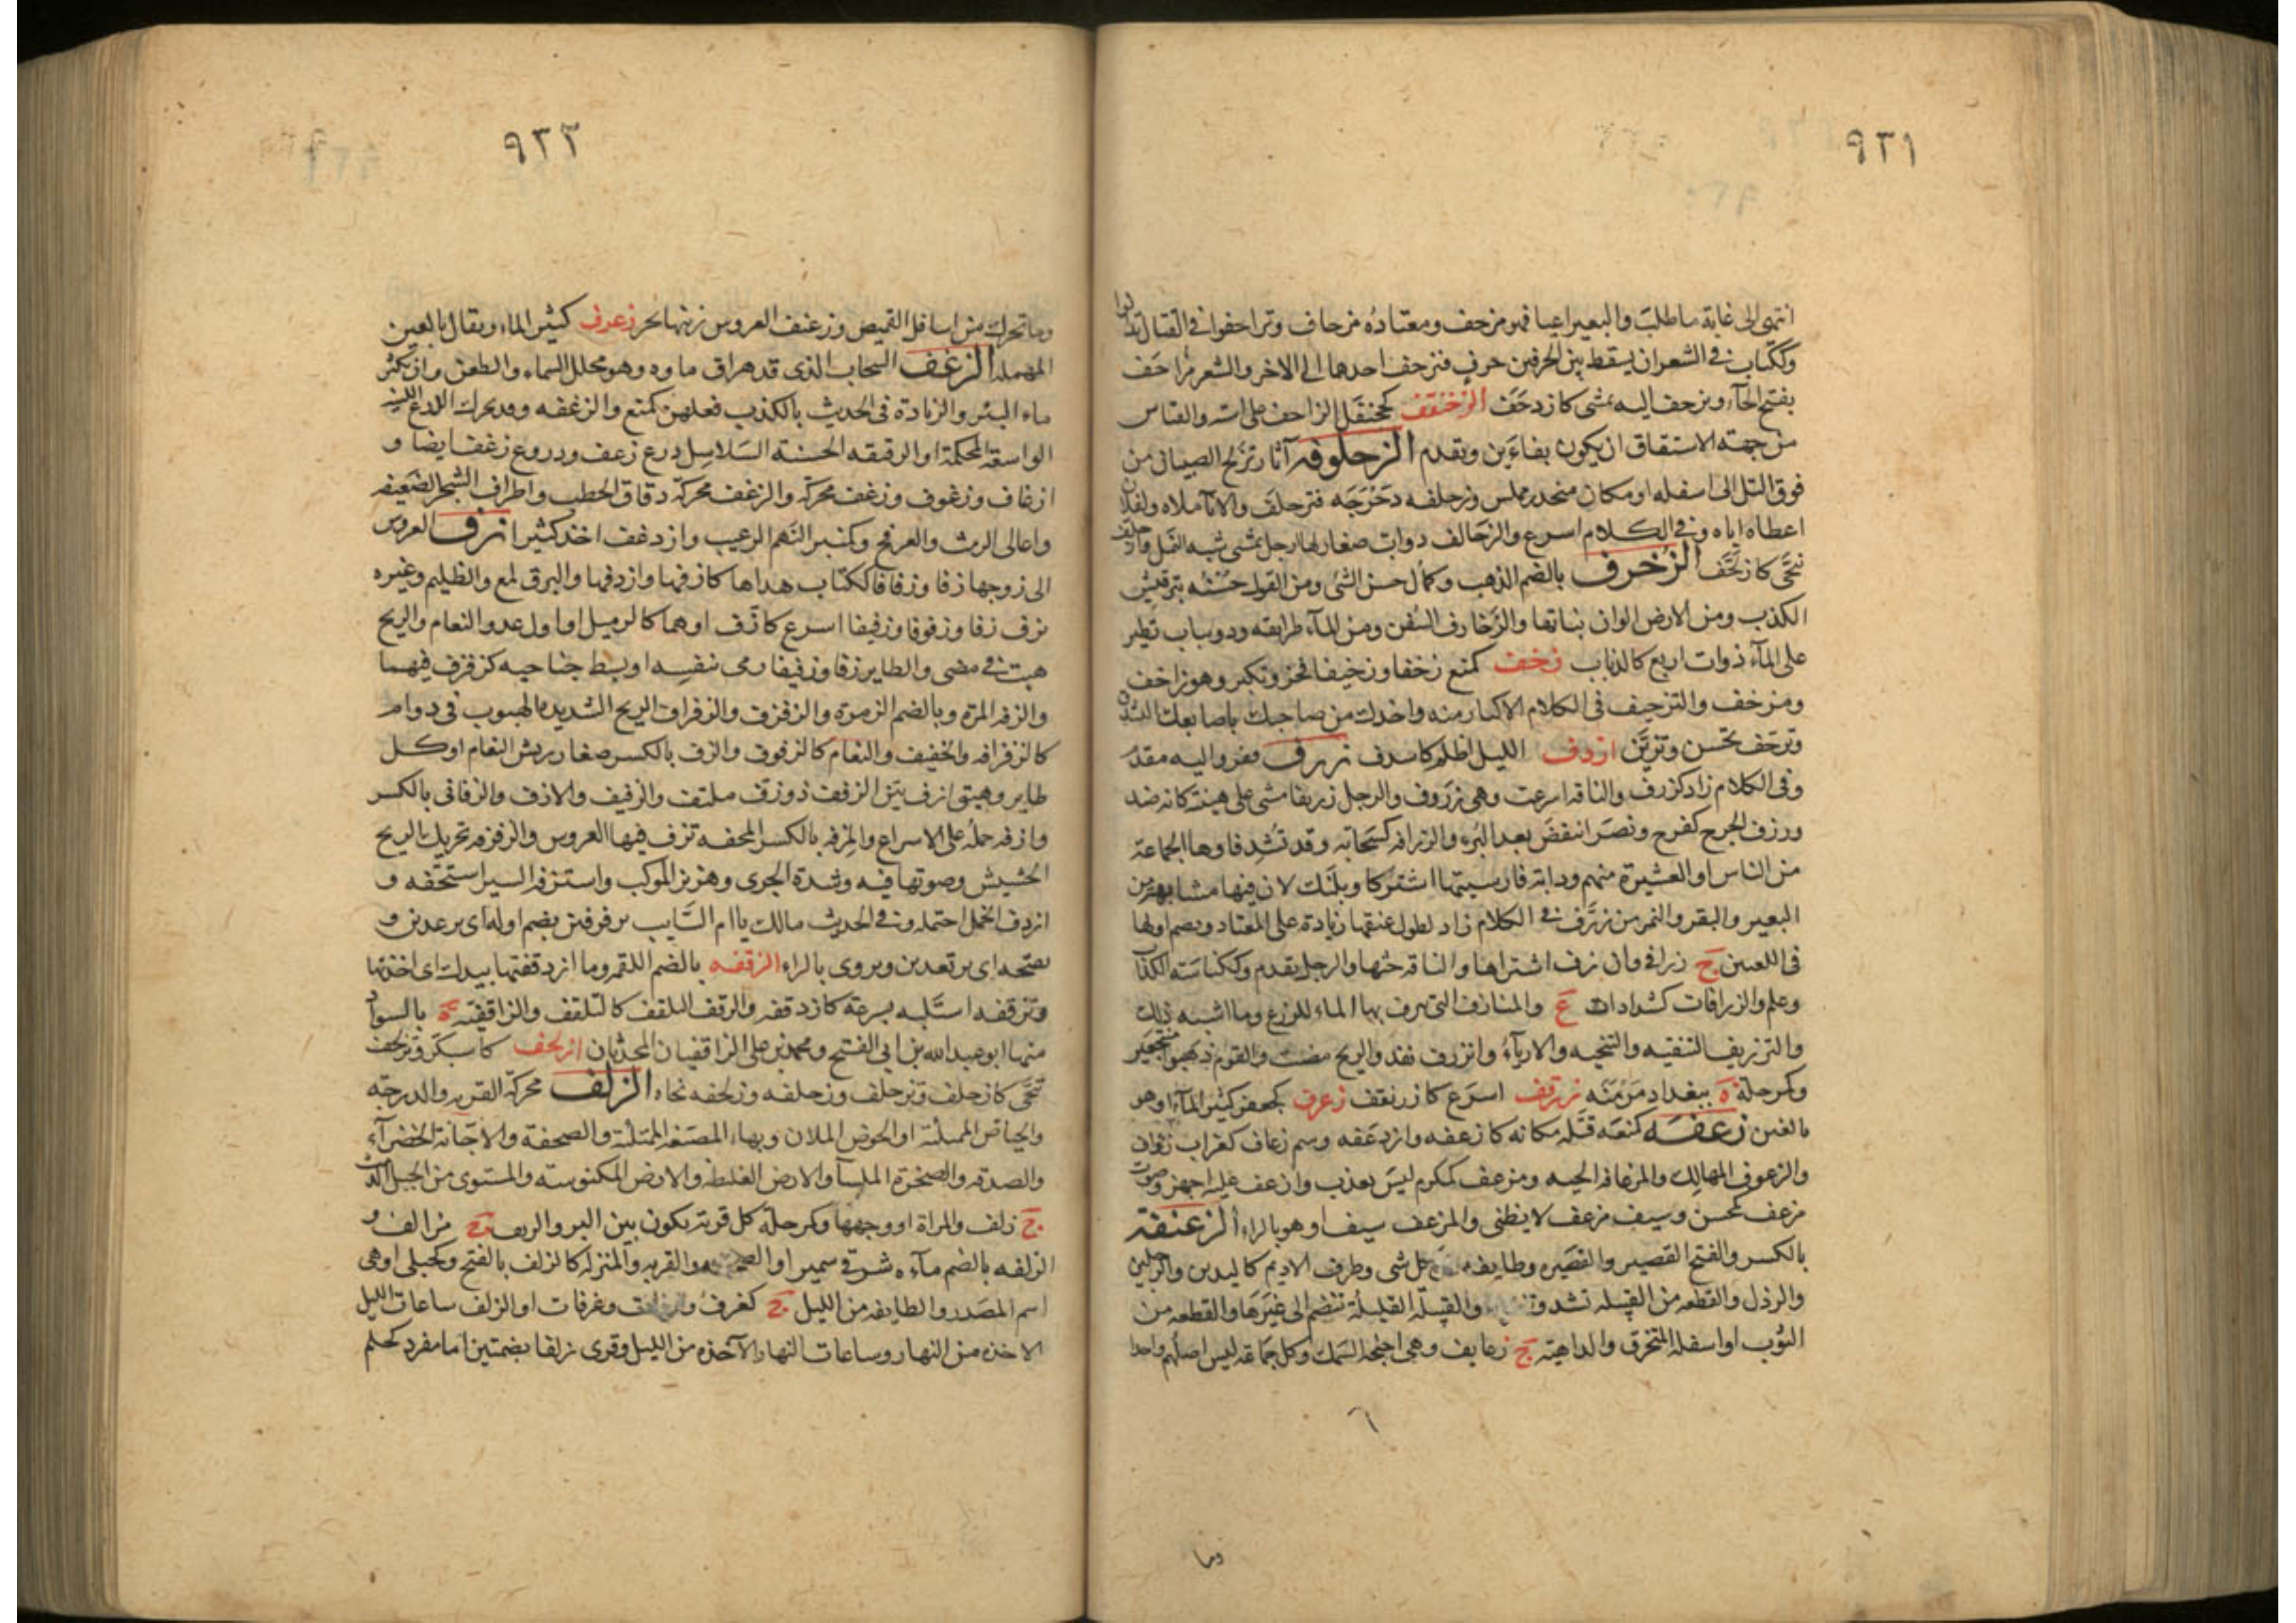 ٩٣١
انتهى الى غاية ما طلب والبعير اعيا فهو مزحف ومعتاده مزحاف وتزاحفوا في القتال تدانوا
وككتاب في الشعر ان يسقط بين الحرفين حرف فتزحف احدهما الى الاخر والشعر مزاحف
بفتح الحآء وتزحف اليه تمشى كازدحف الزخنقف كجحنفل الزاحف على استه والقياس
من جهة الاشتقاق ان يكون بفاءين وتقدم الزحلوفه آثار تزلج الصبيان من
فوق التل الى اسفله او مكان منحدر مملس وزحلفه دحرجه فتزحلف والاناملاه ولفلان
اعطاه اياه وفي الكلام اسرع والزحالف دواب صغار لها ارجل تمشى شبه النمل وازحلف
تنحى كازلحف الزخرف بالضم الذهب وكمال حسن الشئ ومن القول حسنه بترقيش
الكذب ومن الارض الوان نباتها والزخارف السفن ومن المآء طرايقه ودويبات تطير
على المآء ذوات اربع كالذباب زخف كمنع زخفا وزخيفا فخر وتكبر وهو زاخف
ومزخف والتزخيف في الكلام الاكثار منه واخذك من صاحبك باصابعك الشذن
وتزخف تحسن وتزين ازدف الليل اظلم كاسدف زرف قفز واليه مقدم
وفي الكلام زاد كزرف والناقه اسرعت وهي زروف والرجل زريفا مشى على هينته كانه ضد
وزرف الجرح كفرح ونصر انتقض بعد البرء والزرافه كسحابه وقد تشدد فاوها الجماعة
من الناس او العشيرة منهم ودابة فارسيتها اشتركا وبلنك لان فيها مشابهة من
البعير والبقر والنمر من زرف في الكلام زاد لطول عنقها زيادة على المعتاد ويضم اولها
في اللعين ج زرافي وان زرف اشتراها والناقة حثها والرجل تقدم وككناسته الكذاب
وعلم والزرافات كشدادات ع والمنازف التي يترف بها الماء للزرع وما اشبه ذلك
والتزريف التنقيه والتنحيه والارباء وانزرف نفذ والريح مضت والقوم ذهبوا منتجعين
وكمرحلة ة ببغداد منه زرقف اسرع كازرنقف زعرف كجعفر كثير المآء او هو
بالغين زعفه كمنعه قتله مكانه كازعفه وازدعفه وسم زعاف كغراب زؤاف
والزعوف المهالك والمزعافه الحيه ومزعف كمكرم ليس بعذب وازعف عليه اجهز وموت
مزعف كمحسن وسيف مزعف لا يطنى والمزعف سيف او هو بالراء الزعنفة
بالكسر والفتح القصير والقصيره وطايفه من كل شى وطرف الاديم كاليدين والرجلين
والرذل والقطعه من القبيله تشذ وتنفرد والقبيلة القليلة تنضم الى غيرها والقطعه من
الثوب او اسفله المتخرق والداهية ج زعانف وهي اجنحة السمك وكل جماعة ليس اصلهم واحدا
٦
وما
٩٣٢
وما تحرك من اسافل القميص وزعنف العروس زينها بحر زغرف كثير الماء ويقال بالعين
المهمله الزغف السحاب الذي قد هراق ماوه وهو مجلل السماء والطعن وان يكثر
ماء البئر والزيادة في الحديث بالكذب فعلهن كمنع والزغفه وقد يحرك الدرع اللينه
الواسعة المحكمة او الرقيقه الحسنة السلاسل درع زغف ودروع زغف ايضا و
ازغاف وزغوف وزغف محركه والزغف محركه دقاق الحطب واطراف الشجر الضعيفه
واعالى الرمث والعرفج وكمنبر النهم الرغيب وازدغف اخذ كثيرا زف العروس
الى زوجها زفا وزفافا ككتاب هداها كازفها وازدفها والبرق لمع والظليم وغيره
يزف زفا وزفوفا وزفيفا اسرع كازف او هما كالذميل او اول عدو النعام والريح
هبت في مضى والطاير زفا وزفيفا رمى بنفسه او بسط جناحيه كزفزف فيهما
والزفه المرة وبالضم الزمرة والزفزف والزفزاف الريح الشديدة الهبوب في دوام
كالزفزافه والخفيف والنعام كالزفوف والزف بالكسر صغار ريش النعام او كل
طاير وهيق ازف بين الزفف ذو زف ملتف والزفيف والازف والزفاني بالكسر
وازفه حمله على الاسراع والمزفه بالكسر المحفه تزف فيها العروس والزفزفه تحريك الريح
الحشيش وصوتها فيه وشدة الجرى وهزيز الموكب واستزفه السير استخفه و
ازدف الحمل احتمله وفي الحديث مالك يا ام السائب تزفزفين بضم اوله اى ترعدين و
بفتحه اى ترتعدين ويروى بالراء الزقفه بالضم اللقمه وما ازدقفتها بيدك اى اخذتها
وتزقفه استلبه بسرعة كازدقفه والزقف التلقف كالتلقف والزاقفية ة بالسواد
منها ابو عبد الله بن ابي الفتح ومحمد بن على الزاقفيان المحدثان ازلحف كاسبكر وتزلحف
تنحى كازحلف وتزحلف وزحلفه وزلحفه نحاه الزلف محركة القربه والدرجه
والحياض الممتلئة او الحوض الملآن وبهاء المصنعه الممتلئة والصحفة والاجانة الخضرآء
والصدفه والصخرة الملسآ والارض الغليظه والارض المكنوسته والمستوى من الجبل الدمث
ج زلف والمراة او وجهها وكمرحلة كل قرية تكون بين البر والريف ج مزالف و
الزلفه بالضم مآءه شرقي سميرا والصحفه والقربه والمنزله كالزلف بالفتح وكحبلى او هي
اسم المصدر والطايفه من الليل ج كغرف وغرفات وغرفات او الزلف ساعات الليل
الاخذه من النهار وساعات النهار الآخذه من الليل وقرى زلفا بضمتين اما مفرد كحلم